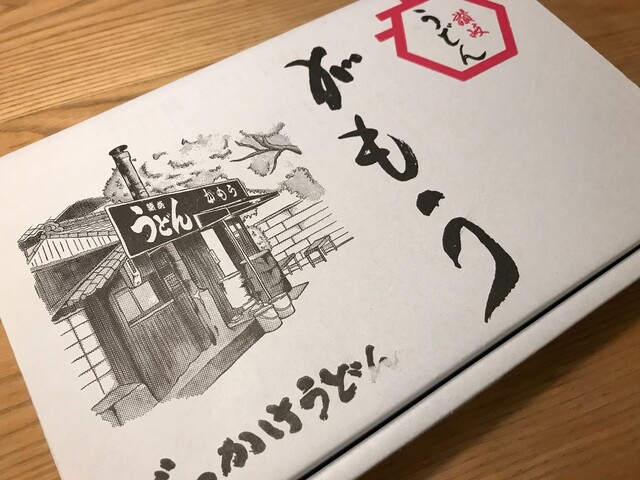 讃岐
うどん
がもう
讃岐
うどん
がもう
ぶっかけうどん